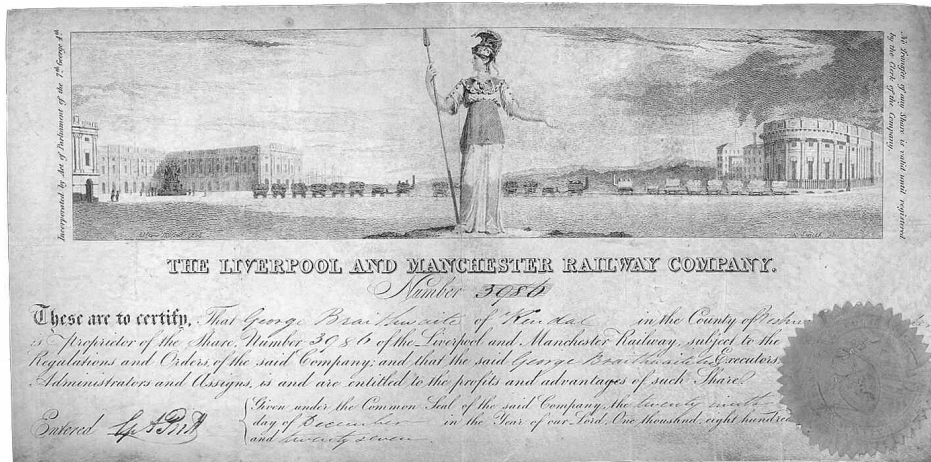 Incorporated by Act of Parliament of the 7th George 4th
No Transfer of any Share is valid until registered
by the Clerk of the Company.
THE LIVERPOOL AND MANCHESTER RAILWAY COMPANY.
Number 3986
These are to certify, That George Braithwaite of Kendal in the County of
is Proprietor of the Share, Number 3986 of the Liverpool and Manchester Railway, subject to the
Regulations and Orders of the said Company; and that the said George Braithwaite his Executors,
Administrators and Assigns, is and are entitled to the profits and advantages of such Share.
Given under the Common Seal of the said Company, the twenty ninth
Entered day of December in the Year of our Lord, One thousand, eight hundred
and twenty seven.